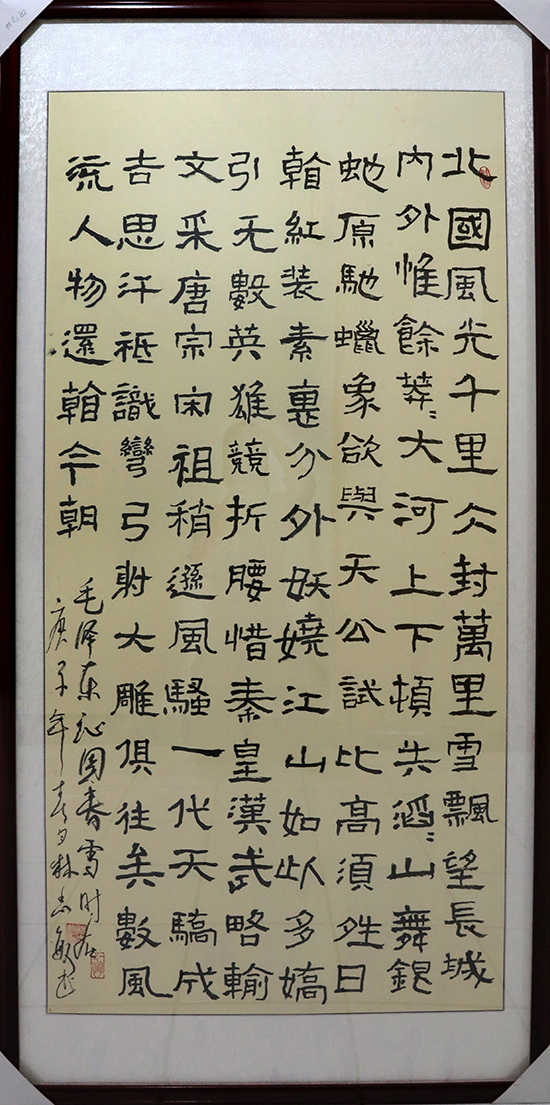 北國風光千里仌封萬里雪飄望長城
内外惟餘莽〻大河上下頓失滔〻山舞銀
虵原馳蠟象欲與天公試比高須夝日
看紅装素裹分外妖嬈江山如此多嬌
引无數英雄競折腰惜秦皇漢武略輸
文采唐宗宋祖稍遜風騷一代天驕成
吉思汗祗識彎弓射大雕俱往矣數風
流人物還看今朝
毛泽东沁园春雪时在
庚子年春月林志敏书